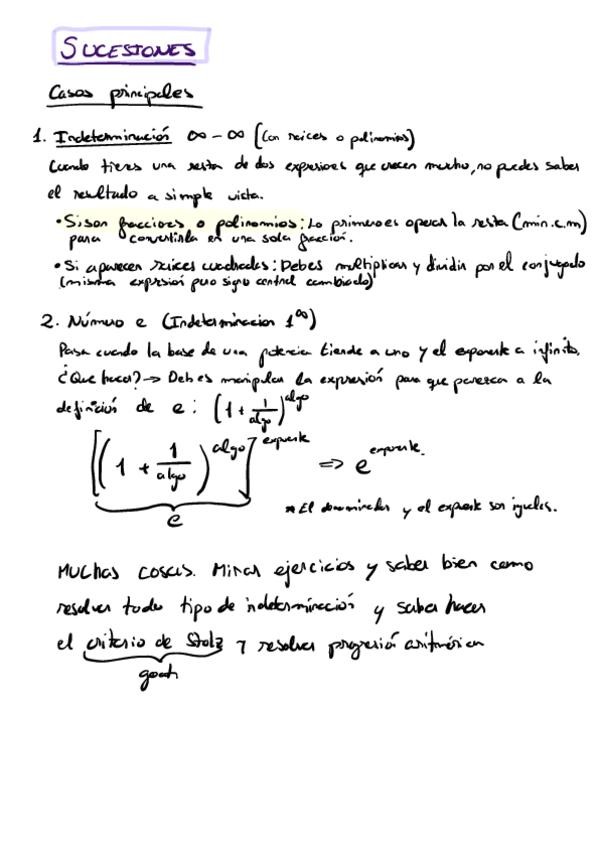 SUCESIONES
Casos principales
1. Indeterminación ∞ - ∞ (Con raices o polinomios)
Cuando tienes una resta de dos expresiones que crecen mucho, no puedes saber
el resultado a simple vista.
• Si son fracciones o polinomios: Lo primero es operar la resta (min.c.m)
para convertirla en una sola fracción.
• Si aparecen raices cuadradas: Debes multiplicar y dividir por el conjugado
(misma expresión pero signo central cambiado)
2. Número e (Indeterminacion 1^∞)
Pasa cuando la base de una potencia tiende a uno y el exponente a infinito.
¿Que hacer? → Debes manipular la expresión para que parezca a la
definición de e: (1 + 1/algo)^algo
[(1 + 1/algo)^algo]^exponente => e^exponente.
e
* El denominador y el exponente son iguales.
MUCHAS COSAS. Mirar ejercicios y saber bien como
resolver todo tipo de indeterminación y saber hacer
el criterio de Stolz y resolver progresión aritmética
goat